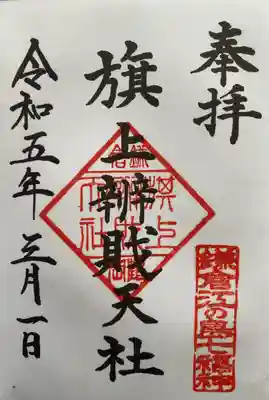 奉拝
旗上辧戝天社
令和五年三月一日
鎌倉江の島七福神